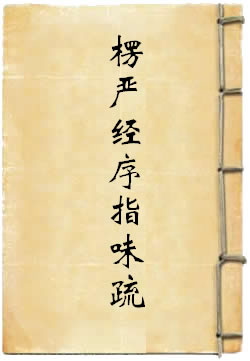 楞严经序指味疏